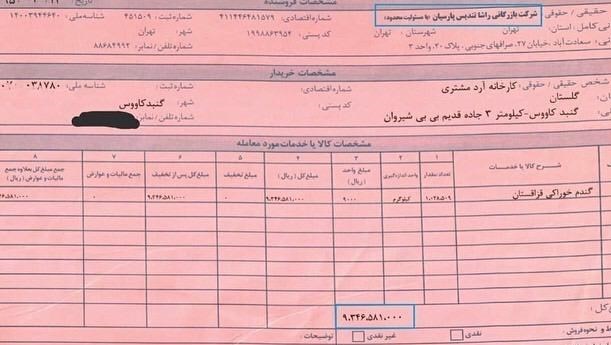 مشخصات فروشنده
حقیقی / حقوقی: شرکت بازرگانی راشا تندیس پارسیان (با مسئولیت محدود)
شماره اقتصادی: ۴۱۱۴۴۶۴۸۱۵۷۹
شماره ثبت: ۴۵۱۵۰۹
شناسه ملی: ۱۴۰۰۳۹۴۴۶۴۰
استان: تهران
شهرستان: تهران
کد پستی: ۱۹۹۸۸۶۳۹۵۴
شهر: تهران
سعادت آباد، خیابان ۲۷، صرافهای جنوبی، پلاک ۲۰، واحد ۳
شماره تلفن / نمابر: ۸۸۶۸۴۹۹۲
مشخصات خریدار
شخص حقیقی / حقوقی: کارخانه آرد مشتری
شماره اقتصادی:
شماره ثبت:
شناسه ملی:
گلستان
کد پستی:
شهر: گنبدکاووس
گنبد کاووس-کیلومتر ۳ جاده قدیم بی بی شیروان
شماره تلفن/ نمابر:
مشخصات کالا یا خدمات مورد معامله
۱ ۲ ۳ ۴ ۵ ۶ ۷ ۸
شرح کالا یا خدمات تعداد مقدار واحد اندازه‌گیری مبلغ واحد (ریال) مبلغ کل (ریال) مبلغ تخفیف مبلغ کل پس از تخفیف جمع مالیات و عوارض جمع مبلغ کل بعلاوه جمع مالیات و عوارض (ریال)
گندم خوراکی قزاقستان ۱،۰۳۸،۵۰۹ کیلوگرم ۹۰۰۰ ۹،۳۴۶،۵۸۱،۰۰۰ ۰ ۹،۳۴۶،۵۸۱،۰۰۰ ۰
کل: ۹،۳۴۶،۵۸۱،۰۰۰
ط و نحوه فروش: نقدی غیر نقدی توضیحات: